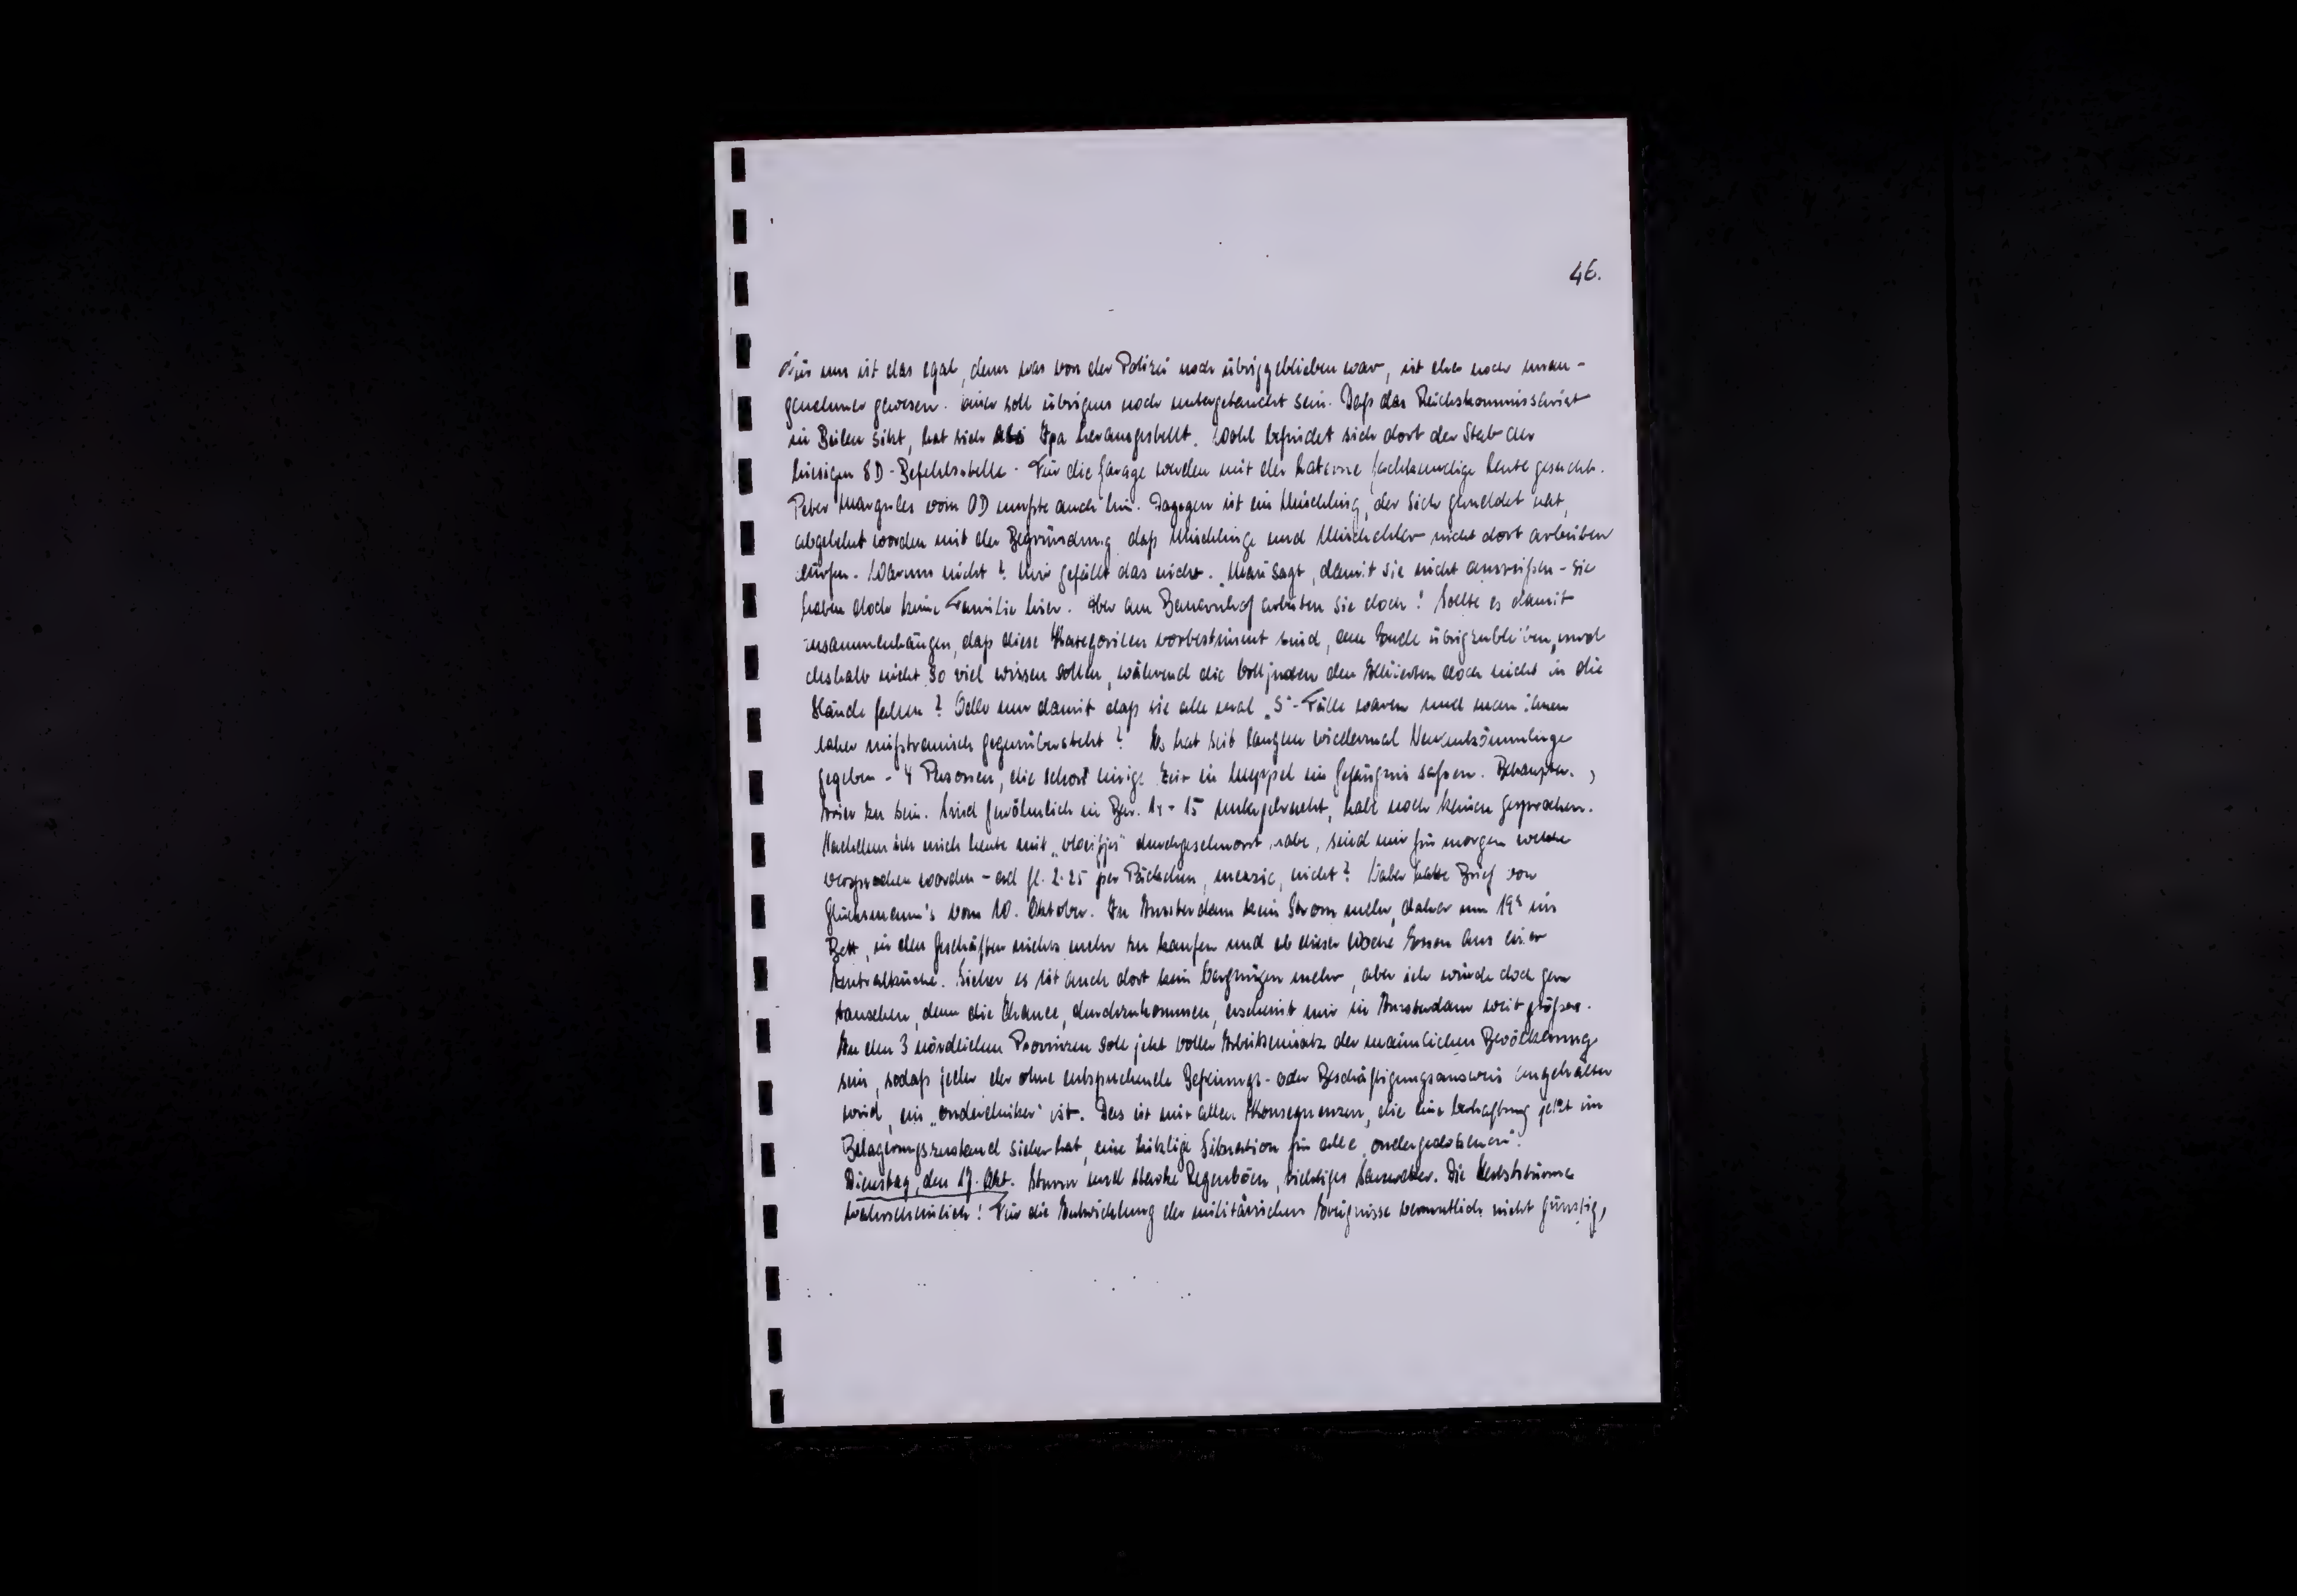 46.
Für uns ist das egal, denn was von der Polizei noch übriggeblieben war, ist eher noch unan-
genehmer gewesen. Einer soll übrigens noch untergetaucht sein. Daß das Reichskommissariat
in Beilen sitzt, hat sich als Ipa herausgestellt. Wohl befindet sich dort der Stab der
hiesigen SD-Befehlsstelle. Für die Garage werden mit der Laterne fachkundige Leute gesucht.
Peter Margules vom OD mußte auch hin. Dagegen ist ein Mischling, der sich gemeldet hat,
abgelehnt worden mit der Begründung, daß Mischlinge und Mischehler nicht dort arbeiten
dürfen. Warum nicht? Mir gefällt das nicht. Man sagt, damit sie nicht ausreißen - sie
haben doch keine Familie hier. Aber am Bauernhof arbeiten sie doch! Sollte es damit
zusammenhängen, daß diese Kategorien vorbestimmt sind, am Ende übrigzubleiben, und
deshalb nicht so viel wissen sollen, während die Volljuden den Alliierten doch nicht in die
Hände fallen? Oder nur damit daß sie alle mal "S"-Fälle waren und man ihnen
daher mißtrauisch gegenübersteht? Es hat seit langem wiedermal Neuankömmlinge
gegeben - 4 Personen, die schon einige Zeit in Meppel im Gefängnis saßen. Behaupten,
Arier zu sein. Sind gewöhnlich in Bar. 14-15 untergebracht, habe noch keinen gesprochen.
Nachdem ich mich heute mit durchgeschnorrt habe, sind mir für morgen welche
versprochen worden - ad fl. 2.25 per Päckchen, nicht? Habe Brief von
Glücksmann's vom 10. Oktober. In Amsterdam kein Strom mehr, daher um 19h ins
Bett, in den Geschäften nichts mehr zu kaufen und ab dieser Woche Essen aus einer
Zentralküche. Sicher es ist auch dort kein Vergnügen mehr, aber ich würde doch gern
tauschen, denn die Chance, durchzukommen, erscheint mir in Amsterdam weit größer.
In den 3 nördlichen Provinzen soll jetzt voller Arbeitseinsatz der männlichen Bevölkerung
sein, sodaß jeder der ohne entsprechende Befreiungs- oder Beschäftigungsausweis angehalten
wird, ein "onderduiker" ist. Das ist mit allen Konsequenzen, die eine Verhaftung jetzt im
Belagerungszustand sicher hat, eine kitzlige Situation für alle "ondergedokenen".
Dienstag, den 17. Okt. Sturm und starke Regenböen, richtiges Sauwetter. Die Herbststürme
wahrscheinlich! Für die Entwicklung der militärischen Ereignisse vermutlich nicht günstig,